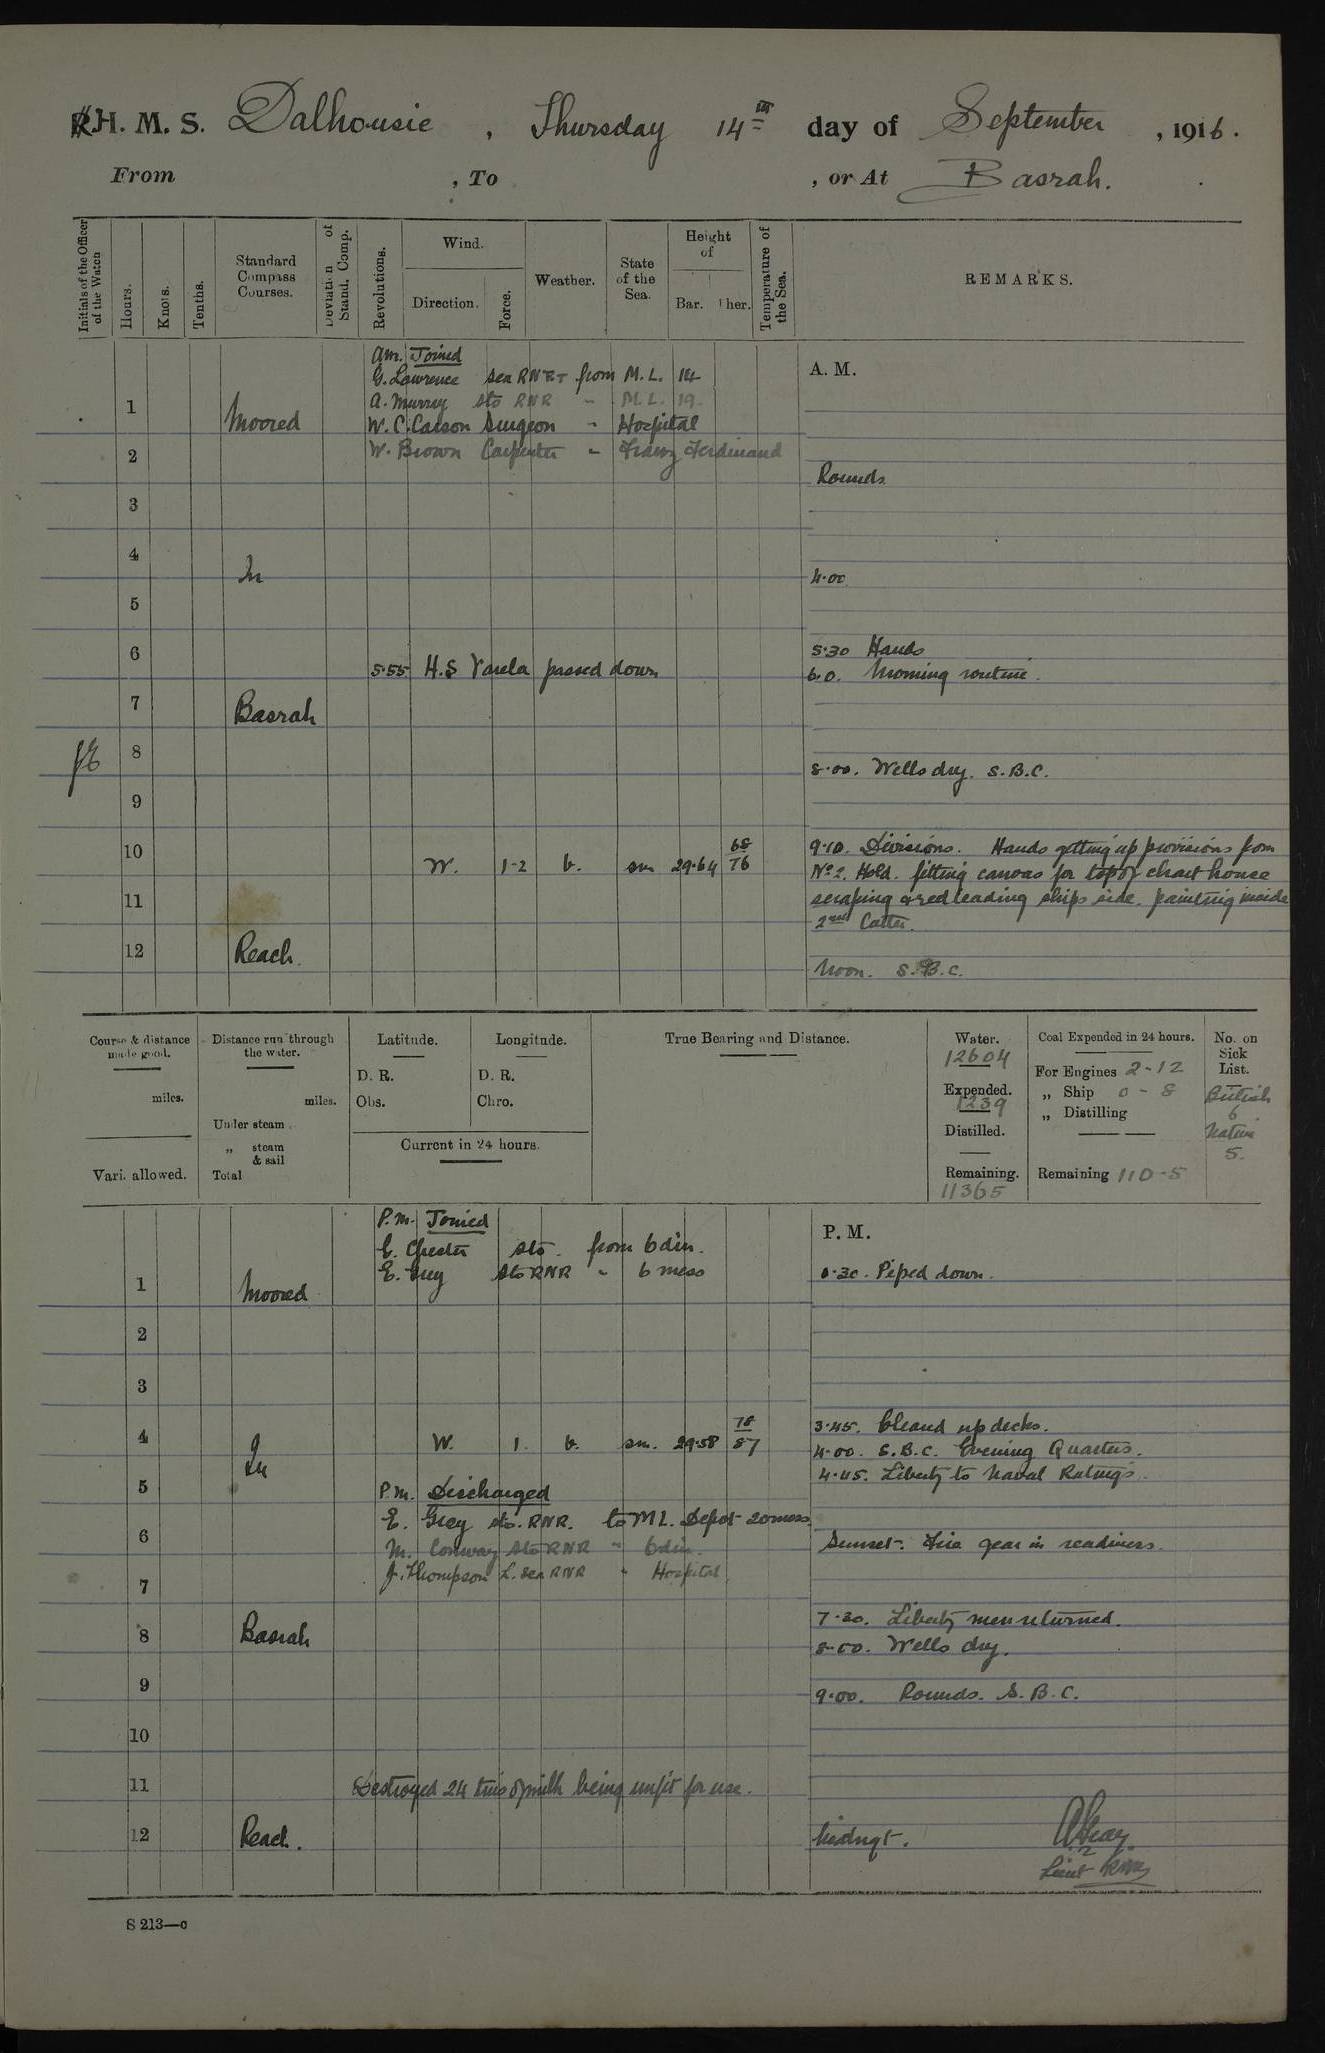 H. M. S. Dalhousie , Thursday 14th day of September , 1916.
From , To , or At Basrah.
Initials of the Officer of the Watch
Hours.
Knots.
Tenths.
Standard Compass Courses.
Deviation of Stand. Comp.
Revolutions.
Wind.
Direction.
Force.
Weather.
State of the Sea.
Height of
Bar. Ther.
Temperature of the Sea.
REMARKS.
Am. Joined
A. M.
G. Lawrence Sea RNR T from M.L. 14
A. Murray Sto RNR " M.L. 19.
1 Moored W. C. Carson Surgeon " Hospital
2 W. Brown Carpenter " Franz Ferdinand
Rounds.
3
4
In 4.00
5
6 5.30 Hands
5.55 H.S Varela passed down 6.0. Morning routine.
7 Basrah
8
8.00. Wells dry. S.B.C.
9
10 9.10. Divisions. Hands getting up provisions from
W. 1-2 b. sm 29.64 68/76 No 2. Hold. fitting canvas for top of chart house
11 scraping & redleading ships side. painting inside
2nd Cutter.
12 Reach.
Noon. S.B.C.
Course & distance made good.
miles.
Vari. allowed.
Distance run through the water.
miles.
Under steam
„ steam & sail
Total
Latitude.
D. R.
Obs.
Longitude.
D. R.
Chro.
Current in 24 hours.
True Bearing and Distance.
Water.
12604
Expended.
1239
Distilled.
Remaining.
11365
Coal Expended in 24 hours.
For Engines 2-12
„ Ship 0-8
„ Distilling
Remaining 110-5
No. on Sick List.
British
6
Native
5.
P.M. Joined
P. M.
E. Chester Sto. from 6 din.
E. Grey Sto RNR " 6 mess 0.30. Piped down.
1 Moored
2
3
3.45. Cleand up decks.
4 W. 1. b. sm. 29.58 78/87 4.00. S.B.C. Evening Quarters.
In 4.45. Liberty to Naval Ratings.
5 P.M. Discharged
E. Grey Sto. RNR. to M L. Depot 20 mess.
6 M. Conway Sto RNR " 6 din. Sunset. Fire gear in readiness.
7 J. Thompson L. Sea RNR " Hospital
7.30. Liberty men returned.
8 Basrah 8.00. Wells dry.
9 9.00. Rounds. S.B.C.
10
11 Destroyed 24 tins of milk being unfit for use.
12 Reach. Midngt.
Lieut RNR
S 213—c